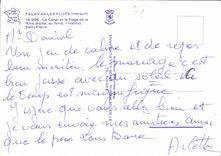 PALAVAS-LES-FLOTS (Hérault)
10.904 - Le Canal et la Plage de la
Rive droite, au fond, l'Institut
Saint-Pierre.
Daniel
Un jour de calme et de repos
bien mérité, le mariage c'est
bien passé avec du soleil
le temps est magnifique
J'espère que vous allez bien et
je vous envoie mes amitiés ainsi
que le père Louis
Arlette